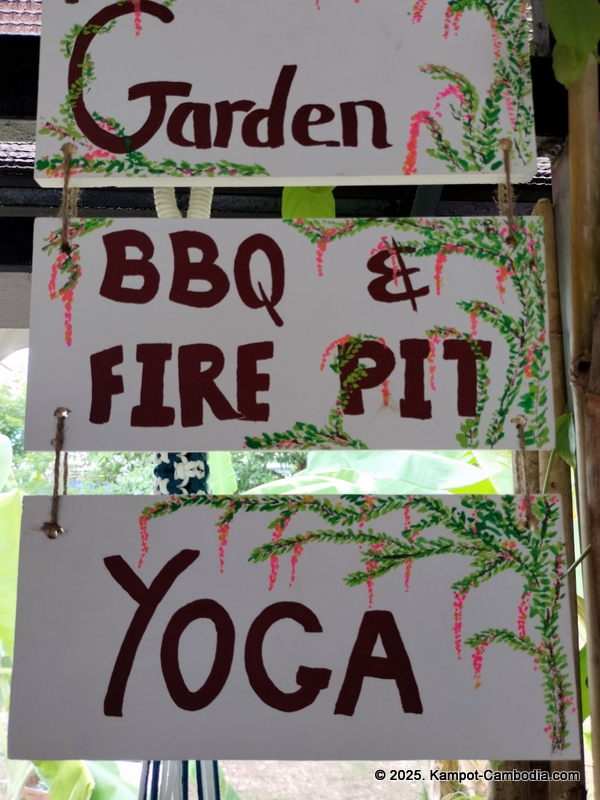 Garden
BBQ &
FIRE PIT
YOGA
© 2025. Kampot-Cambodia.com